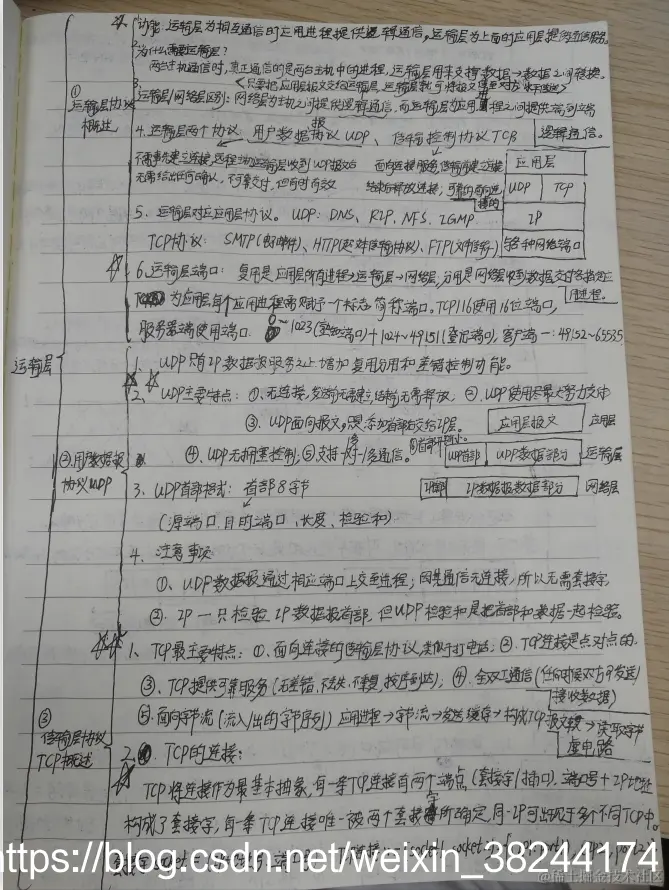 1. 功能:运输层为相互通信的应用进程提供逻辑通信,运输层为上面的应用层提供通信服务。
2. 为什么需要运输层?
两台主机通信时,真正通信的是两台主机中的进程,运输层用来支撑数据→数据之间
3.
只要把应用层报文交给运输层,运输层就可将报文
运输层/网络层区别:网络层为主机之间提供逻辑通信,而运输层为应用进程之间提供端到端
逻辑通信。
① 运输层协议概述
4. 运输层两个协议 用户数据报协议 UDP、传输控制协议 TCP
不需事先建立连接,远程主机运输层收到UDP报文后
无需给出任何确认,不可靠交付,但有时有效
面向连接服务,传输前建立连接
结束后释放连接,可靠的面向连接的
应用层
UDP TCP
IP
与各种网络端口
5. 运输层对应应用层协议。UDP:DNS、RIP、NFS、IGMP
TCP协议:SMTP(电邮件)、HTTP(超文本传输协议)、FTP(文件传输)
6. 运输层端口:复用是应用层所有进程→运输层→网络层,分用是网络层收到数据交付各指定应用进程。
为应用层每个应用进程需赋予一个标志,简称端口。TCP/IP使用16位端口,
服务器端使用端口:0~1023(熟知端口)+1024~49151(登记端口),客户端一:49152~65535
运输层
1. UDP只有IP数据报服务之上增加复用分用和差错控制功能。
2. UDP主要特点:①、无连接,发送前无需建立,结束时无需释放;②、UDP使用尽最大努力交付
③、UDP面向报文,只是添加首部后交给IP层。
应用层报文 应用层
②用户数据报协议UDP
④、UDP无拥塞控制;⑤支持一对一/多通信。
⑥首部开销小。
UDP首部 UDP数据部分 运输层
3. UDP首部格式:首部8字节
IP首部 IP数据报数据部分 网络层
(源端口、目的端口、长度、检验和)
4. 注意事项
①、UDP数据报通过相应端口上交至进程;因其通信无连接,所以无需套接字
②、IP一只检验IP数据报首部,但UDP检验和是把首部和数据一起检验。
1、TCP最主要特点:①、面向连接的传输层协议,类似于打电话;②、TCP连接是点对点的.
③、TCP提供可靠服务(无差错、不丢失、不重复、按序到达);④、全双工通信(任何时候双方可发送/
接收数据)
③ 传输层协议TCP概述
⑤、面向字节流(流入/出的字节序列) 应用进程→字节流→发送缓存→构成TCP报文段→读取字节
虚电路
2. TCP的连接:
TCP将连接作为最基本抽象,每一条TCP连接有两个端点(套接字/插口).端口号+IP地址
构成了套接字,每一条TCP连接唯一被两个套接字所确定,同一IP可出现于多个不同TCP中.
https://blog.csdn.net/weixin_38244174
@稀土掘金技术社区